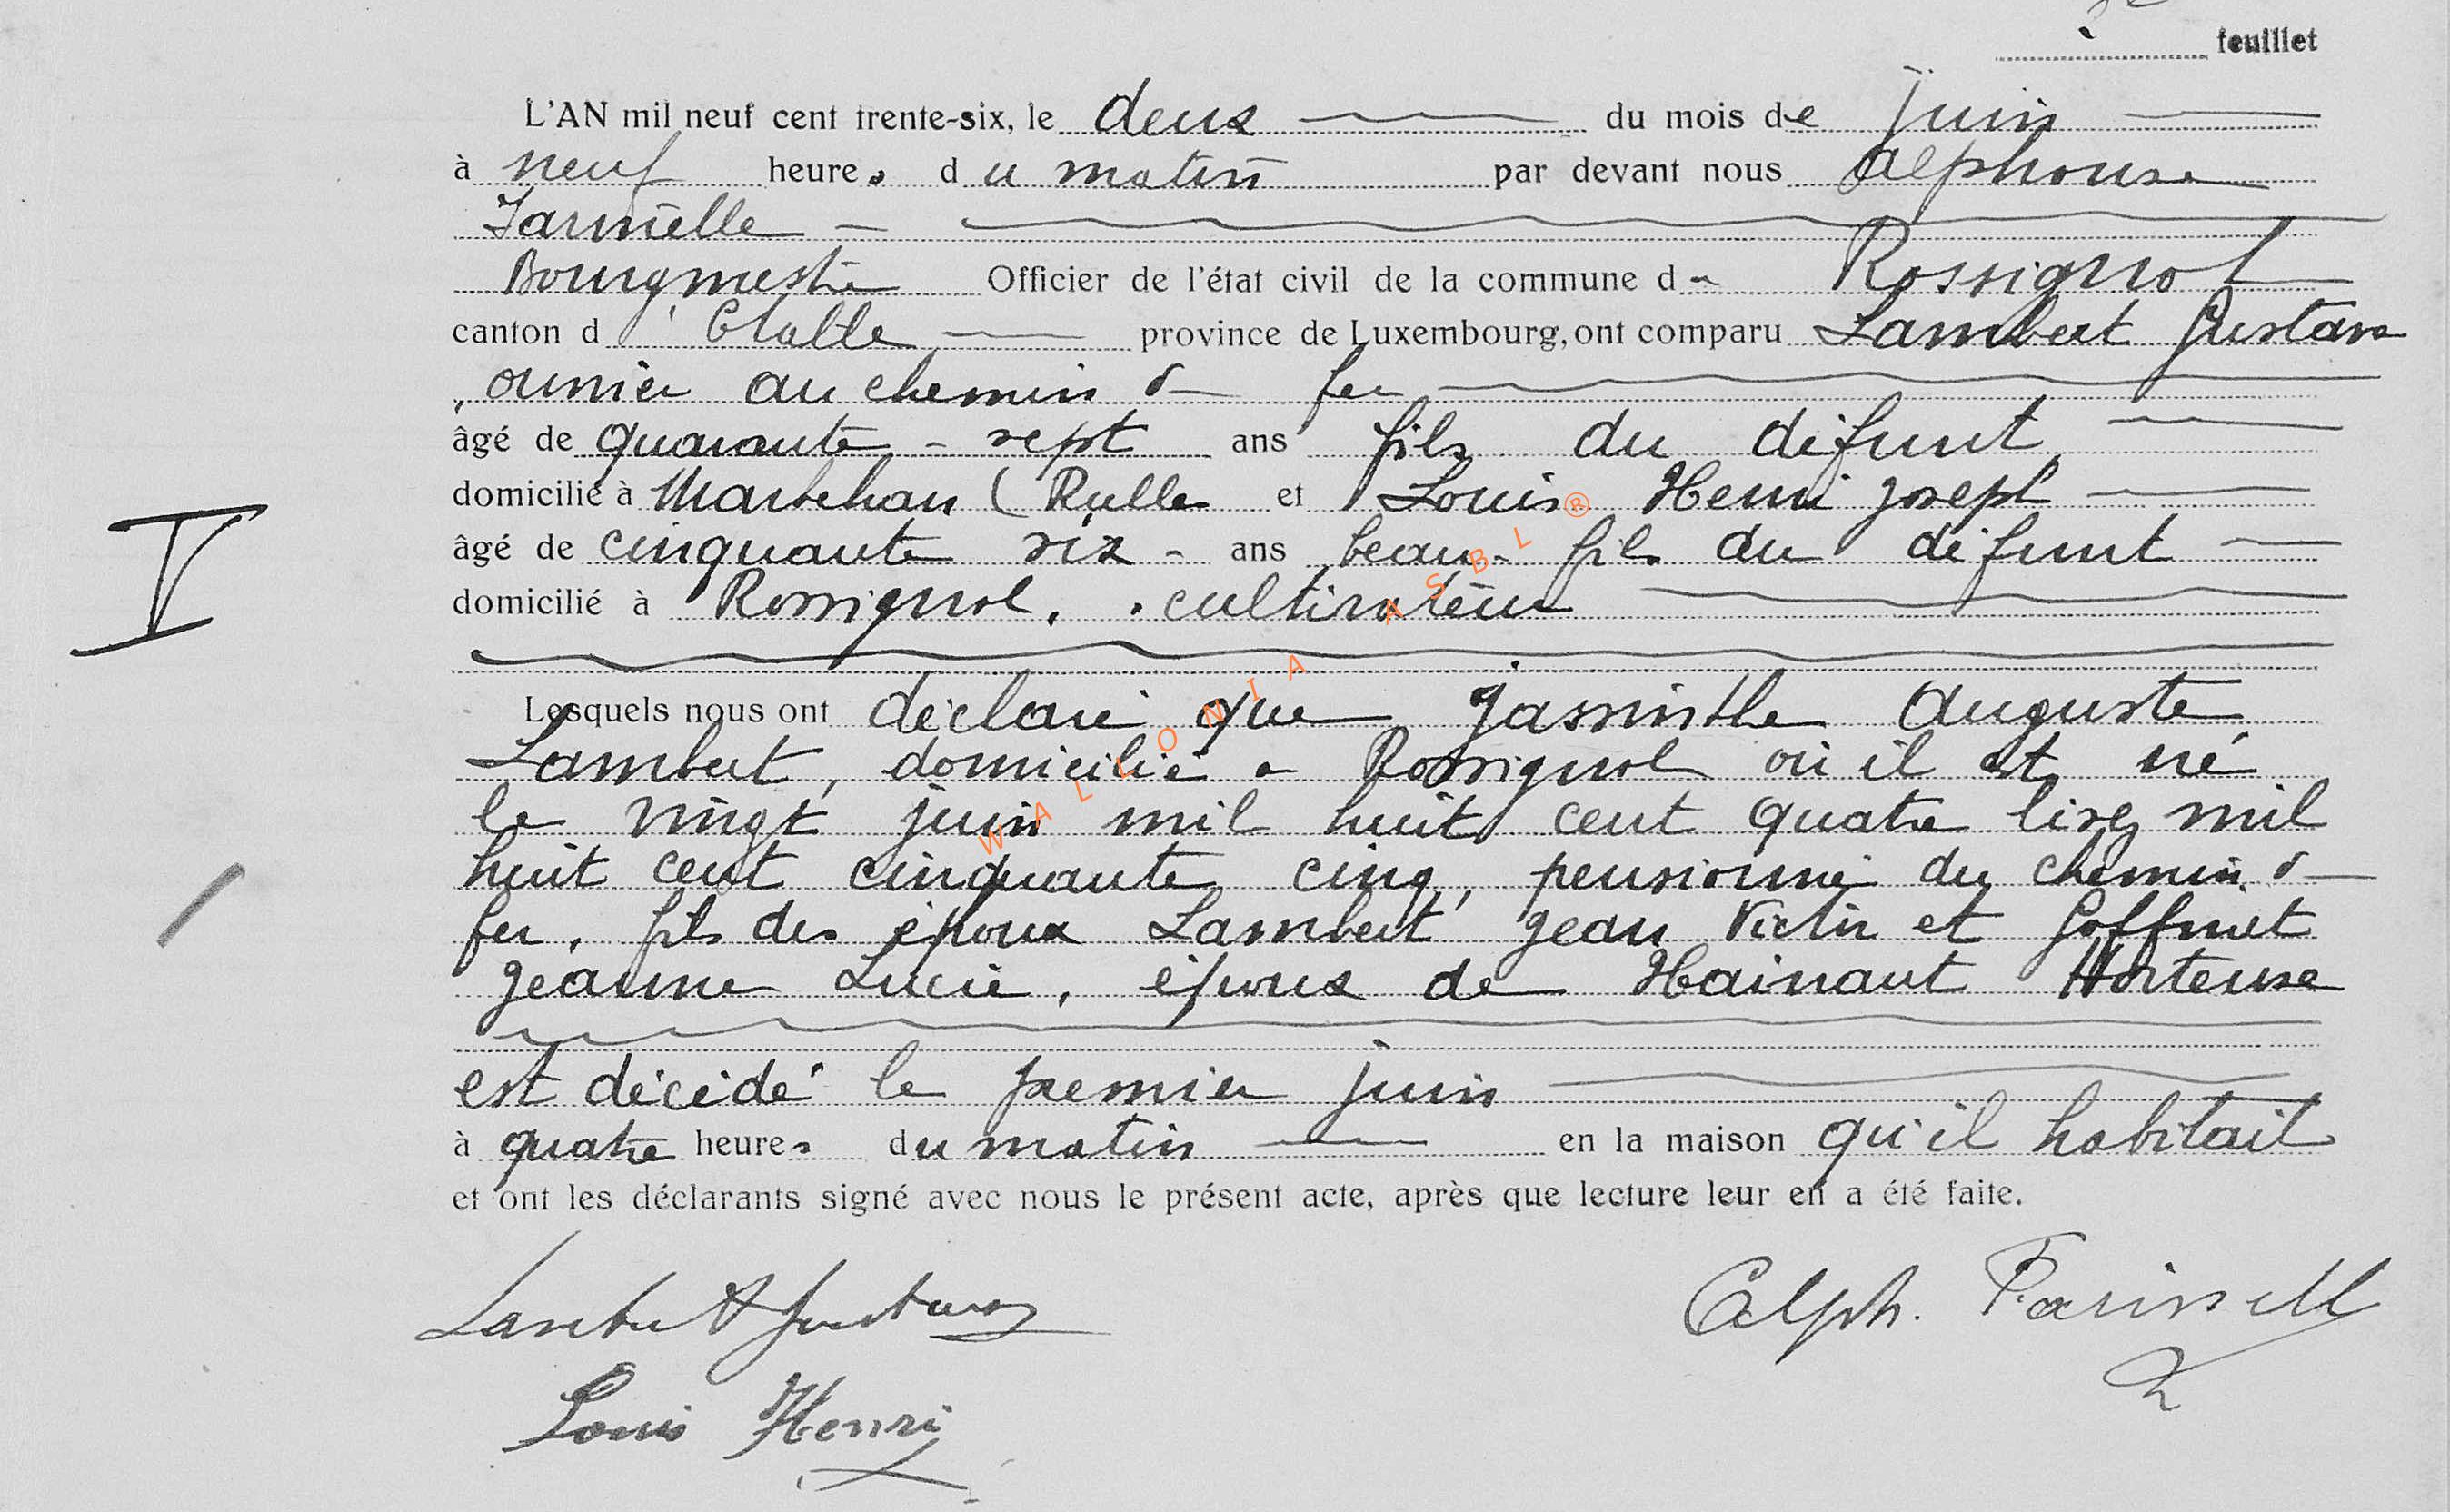 feuillet
L'AN mil neuf cent trente-six, le deux du mois de juin
à neuf heures du matin par devant nous Alphonse
Bourgmestre Officier de l'état civil de la commune de Rossignol
canton d'Etalle province de Luxembourg, ont comparu Lambert Gustave
, ouvrier au chemin de fer
âgé de quarante-sept ans fils du défunt
domicilié à Marbehan (Rulles et Louis Henri Joseph
âgé de cinquante six - ans beau-fils du défunt
domicilié à Rossignol, cultivateur
Lesquels nous ont déclaré que Jassinthe Auguste
Lambert, domicilié à Rossignol où il est né
le vingt juin mil huit cent quatre lisez mil
huit cent cinquante cinq, pensionné du chemin de
fer, fils des époux Lambert Jean Victor et Goffinet
Jeanne Lucie, époux de Hainaut Hortense
est décédé le premier juin
à quatre heures du matin en la maison qu'il habitait
et ont les déclarants signé avec nous le présent acte, après que lecture leur en a été faite.
Lambert Gustave Alph.
Louis Henri
WALLONIA ASBL ®